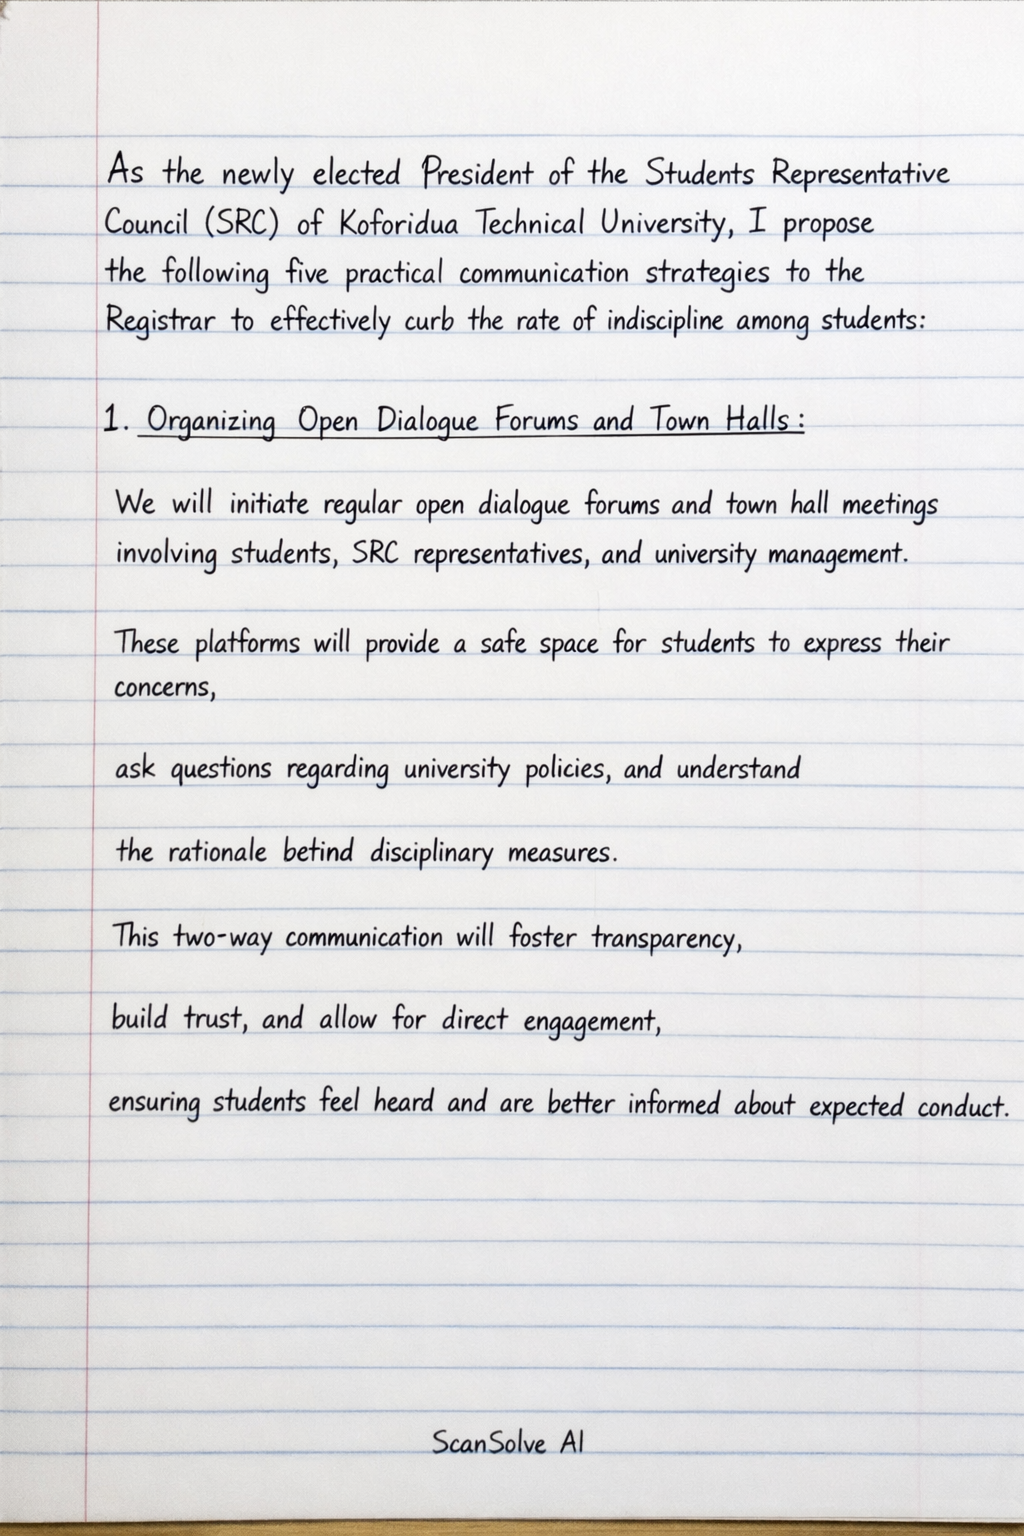 As the newly elected President of the Students Representative
Council (SRC) of Koforidua Technical University, I propose
the following five practical communication strategies to the
Registrar to effectively curb the rate of indiscipline among students:
1. Organizing Open Dialogue Forums and Town Halls:
We will initiate regular open dialogue forums and town hall meetings
involving students, SRC representatives, and university management.
These platforms will provide a safe space for students to express their
concerns,
ask questions regarding university policies, and understand
the rationale betind disciplinary measures.
This two-way communication will foster transparency,
build trust, and allow for direct engagement,
ensuring students feel heard and are better informed about expected conduct.
ScanSolve AI